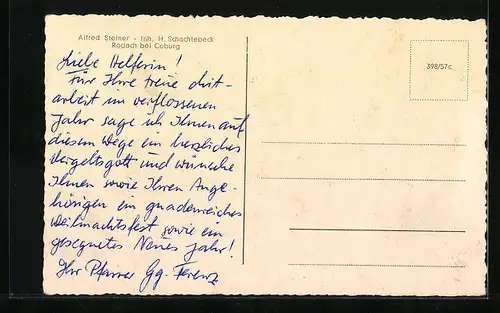 Alfred Steiner - Inh. H. Schachtebeck
Rodach bei Coburg
398/57c
Liebe Helferin!
Für Ihre treue Mit-
arbeit im verflossenen
Jahr sage ich Ihnen auf
diesem Wege ein herzliches
Vergeltsgott und wünsche
Ihnen sowie Ihren Ange-
hörigen ein gnadenreiches
Weihnachtsfest sowie ein
gesegnetes Neues Jahr!
Ihr Pfarrer Gg.